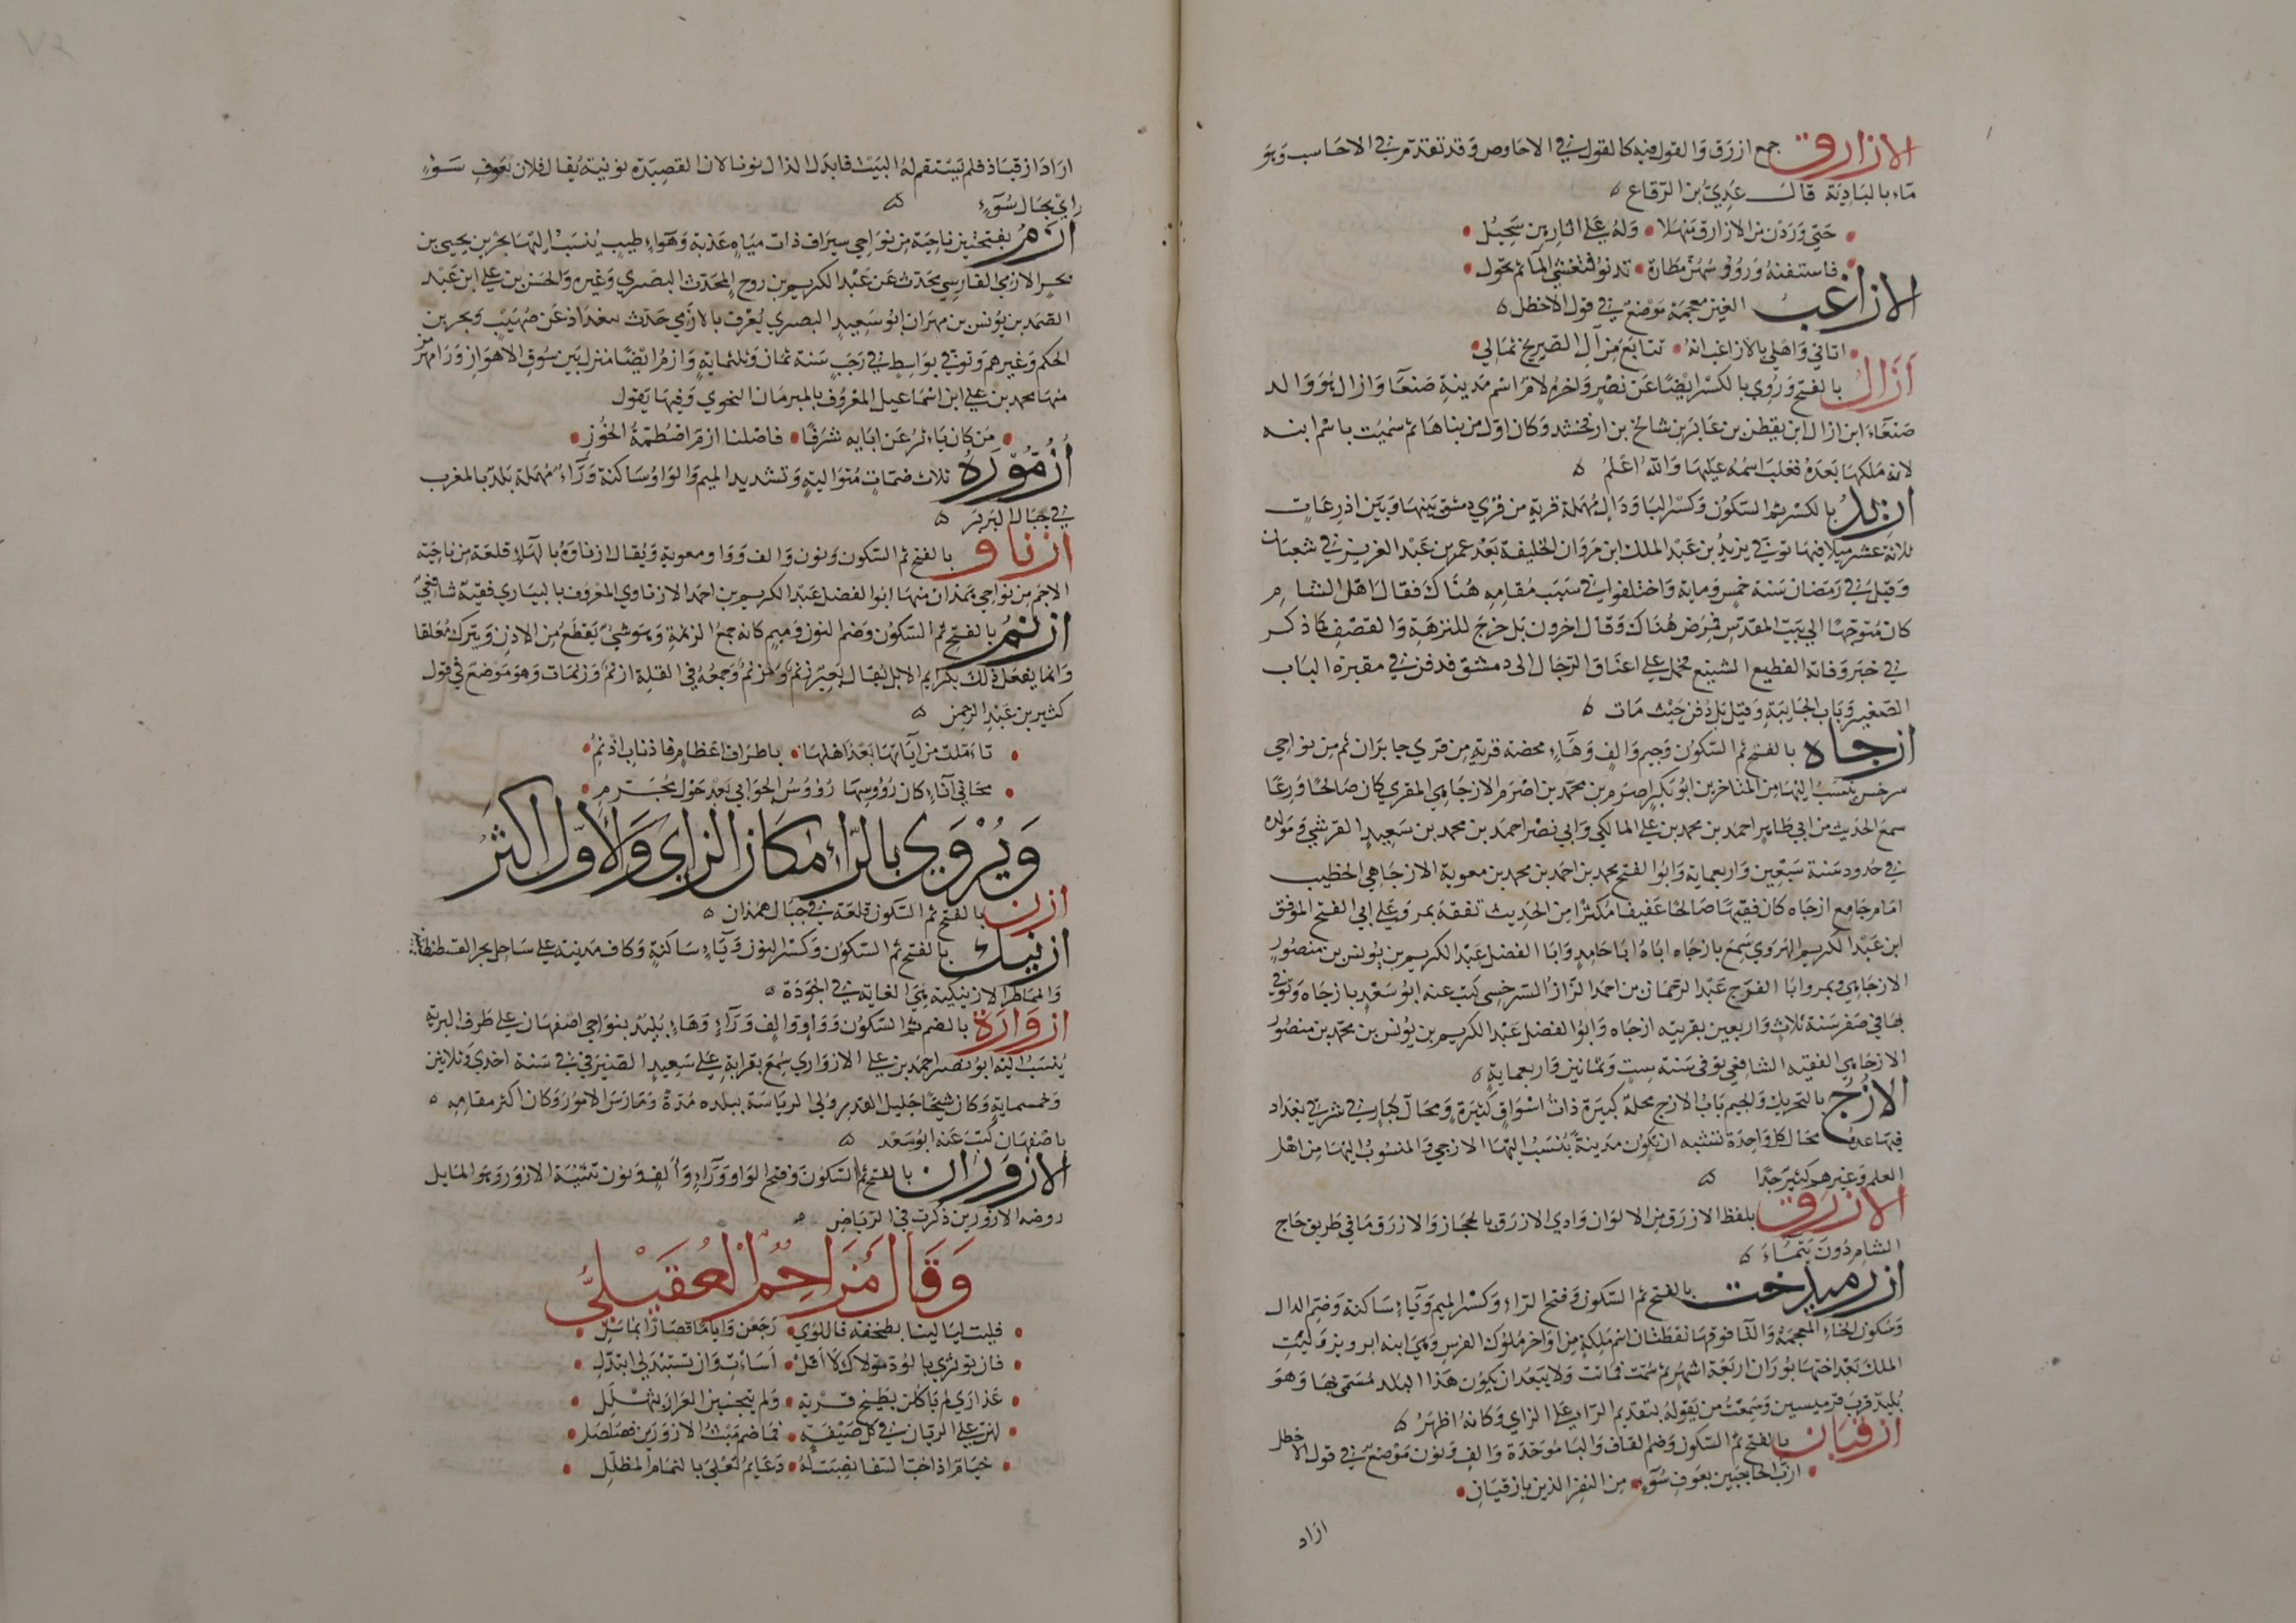 الازارق جمع ازرق والقول فيه كالقول في الاحاوص وقد تقدم في الاحاسب وهو
ماء بالبادية قال عدي بن الرقاع
حتي وردن من الازارق منهلا وله علي اثارهن سحيل
فاستفنه ورؤسهن مطارة تدنو فتغشي الماء ثم تحول
الازاغب الغين معجمة موضع في قول الاخطل
اتاني واهلي بالازاغب انه تتابع من آل الصريخ ثمالي
ازال بالفتح وروي بالكسر ايضا عن نصر واخره لام اسم مدينة صنعا وازال هو والد
صنعاء ابن ازال ابن يقطن بن عابر بن شالخ بن ارفخشد وكان اول من بناها ثم سميت باسم ابنه
لانه ملكها بعده فغلب اسمه عليها والله اعلم
ازبد بالكسر ثم السكون وكسر البا ودال مهملة قرية من قري دمشق بينها وبين اذرعات
ثلاثة عشر ميلا فيها توفي يزيد بن عبد الملك ابن مروان الخليفة بعد عمر بن عبد العزيز في شعبان
وقيل في رمضان سنة خمس ومايه واختلفوا في سبب مقامه هناك فقال اهل الشام
كان متوجها الي بيت المقدس فمرض هناك وقال اخرون بل خرج للنزهة والقصف كما ذكر
في خبر وفاته الفظيع الشنيع فحمل علي اعناق الرجال الى دمشق فدفن في مقبرة الباب
الصغير وباب الجابية وقيل بل دفن حيث مات
ازجاه بالفتح ثم السكون وجيم والف وهاء محضة قرية من قري خابران ثم من نواحي
سرخس ينسب اليها من المتاخرين ابو بكر اصرم بن محمد بن اصرم الازجاهي المقري كان صالحا ورعا
سمع الحديث من ابي طاهر احمد بن محمد بن علي المالكي وابي نصر احمد بن محمد بن سعيد القرشي ومولده
في حدود سنة سبعين واربعماية وابوا الفتح محمد بن احمد بن محمد بن معوية الازجاهي الخطيب
امام جامع ازجاه كان فقيها صالحا عفيفا مكثرا من الحديث تفقه بمرو علي ابي الفتح الموفق
ابن عبد الكريم الهروي سمع بازجاه اباه ابا حامد وابا الفضل عبد الكريم بن يونس بن منصور
الازجاهي وبمرو ابا الفرج عبد الرحمان بن احمد الزاز السرخسي كتب عنه ابو سعد بازجاه وتوفي
بها في صفر سنة ثلاث واربعين بقريته ازجاه وابوا الفضل عبد الكريم بن يونس بن محمد بن منصور
الازجاهي الفقيه الشافعي توفى سنة ست وثمانين واربعماية
الازج بالتحريك والجيم باب الازج محلة كبيرة ذات اسواق كثيرة ومحال كبار في شرقي بغداد
فيها عدة محال كل واحدة تشبه ان تكون مدينة ينسب اليها الازجي والمنسوب اليها من اهل
العلم وغيرهم كثير جدا
الازرق بلفظ الازرق من الالوان وادي الازرق بالحجاز والازرق ما في طريق حاج
الشام دون تيماء
ازرميدخت بالفتح ثم السكون وفتح الراء وكسر الميم وياء ساكنة وضم الدال
وسكون الخاء المعجمة والتا فوقها نقطتان اسم ملكة من اواخر ملوك الفرس وهي ابنه ابرويز وليت
الملك بعد اختها بوران اربعة اشهر ثم سمت فماتت ولا يبعد ان يكون هذا البلد مسمى بها وهو
بليد قرب قرميسين وسمعت من يقوله بتقديم الراء علي الزاي وكانه اظهر
ازقبان بالفتح ثم السكون وضم القاف والبا موحدة والف ونون موضع في قول الاخطل
ازب الحاجبين بعوف سوء من النفر الذين بازقبان
ازاد
ازاد ازقباذ فلم يستقم له البيت فابدل الذال نونا لان القصيدة نونية يقال فلان بعوف سوء
راي بحال سوء
ازم بفتحتين ناحية من نواحي سيراف ذات مياه عذبة وهواء طيب ينسب اليها بحر بن يحيي بن
بحر الازمي الفارسي يحدث عن عبد الكريم بن روح المحدث البصري وغيره والحسن بن علي ابن عبد
الصمد بن يونس بن مهران ابو سعيد البصري يعرف بالازمي حدث ببغداذ عن صهيب وبحر بن
الحكم وغيرهم وتوفي بواسط في رجب سنة ثمان وثلثماية وازم ايضا منزل بين سوق الاهواز ورامهرمز
منها محمد بن علي ابن اسماعيل المعروف بالمبرمان النحوي وفيها يقول
من كان ياثر عن ابايه شرفا فاصلنا ازم اصطمة الخوز
ازمورة ثلاث ضمات متوالية وتشديد الميم والواو ساكنة وراء مهملة بلد بالمغرب
في جبال البربر
ازناو بالفتح ثم السكون ونون والف وواو معوية ويقال ازناوه بالهاء قلعة من ناحية
الاجم من نواحي همذان منها ابوا الفضل عبد الكريم بن احمد الازناوي المعروف بالبياري فقيه شافعي
ازنم بالفتح ثم السكون وضم النون وميم كانه جمع الزنمة وهو شي يقطع من الاذن ويترك معلقا
وانما يفعل ذلك بكرايم الابل يقال بعير زنم ومزنم وجمعه في القلة ازنم وزنمات وهو موضع في قول
كثير بن عبد الرحمن
تاملت من آياتها بعد اهلها باطراف اعظام فاذناب ازنم
محاني آناء كان رؤوسها رؤوس الجوابي بعد حول مجرم
ويروي بالراء مكان الزاي والاول اكثر
ازن بالفتح ثم السكون قلعة في جبال همذان
ازنيك بالفتح ثم السكون وكسر النون وياء ساكنة وكاف مدينة علي ساحل بحر القسطنطينية
والمماطر الازنيكية هي الغاية في الجودة
ازوارة بالضم ثم السكون وواو والف وراء وهاء بليد بنواحي اصفهان علي طرف البرية
ينسب اليه ابو نصر احمد بن علي الازواري سمع بقرابة علي سعيد الصيرفي في سنة احدي وثلاثين
وخمسماية وكان شيخا جليل القدر ولي الرياسة ببلده مدة ومارس الامور وكان اكثر مقامه
باصفهان كتب عنه ابو سعد
الازوران بالفتح ثم السكون وفتح الواو وراء والف ونون تثنية الازور وهو المايل
روضة الازورين ذكرت في الرياض
وقال مزاحم العقيلي
فليت ليالينا بطخفة فاللوي رجعن واياما قصارا بماسل
فان توثري بالود مولاك لا اقل اسات وان تستبدلي ابتدل
عذاري لم ياكلن بطيخ قرية ولم يتجنين العرار بثهلل
لهن علي الريان في كل صيفة فما ضم ميث الازورين فصلصل
خيام اذا خب السفا نصبت له دعايم تعلي بالثمام المظلل